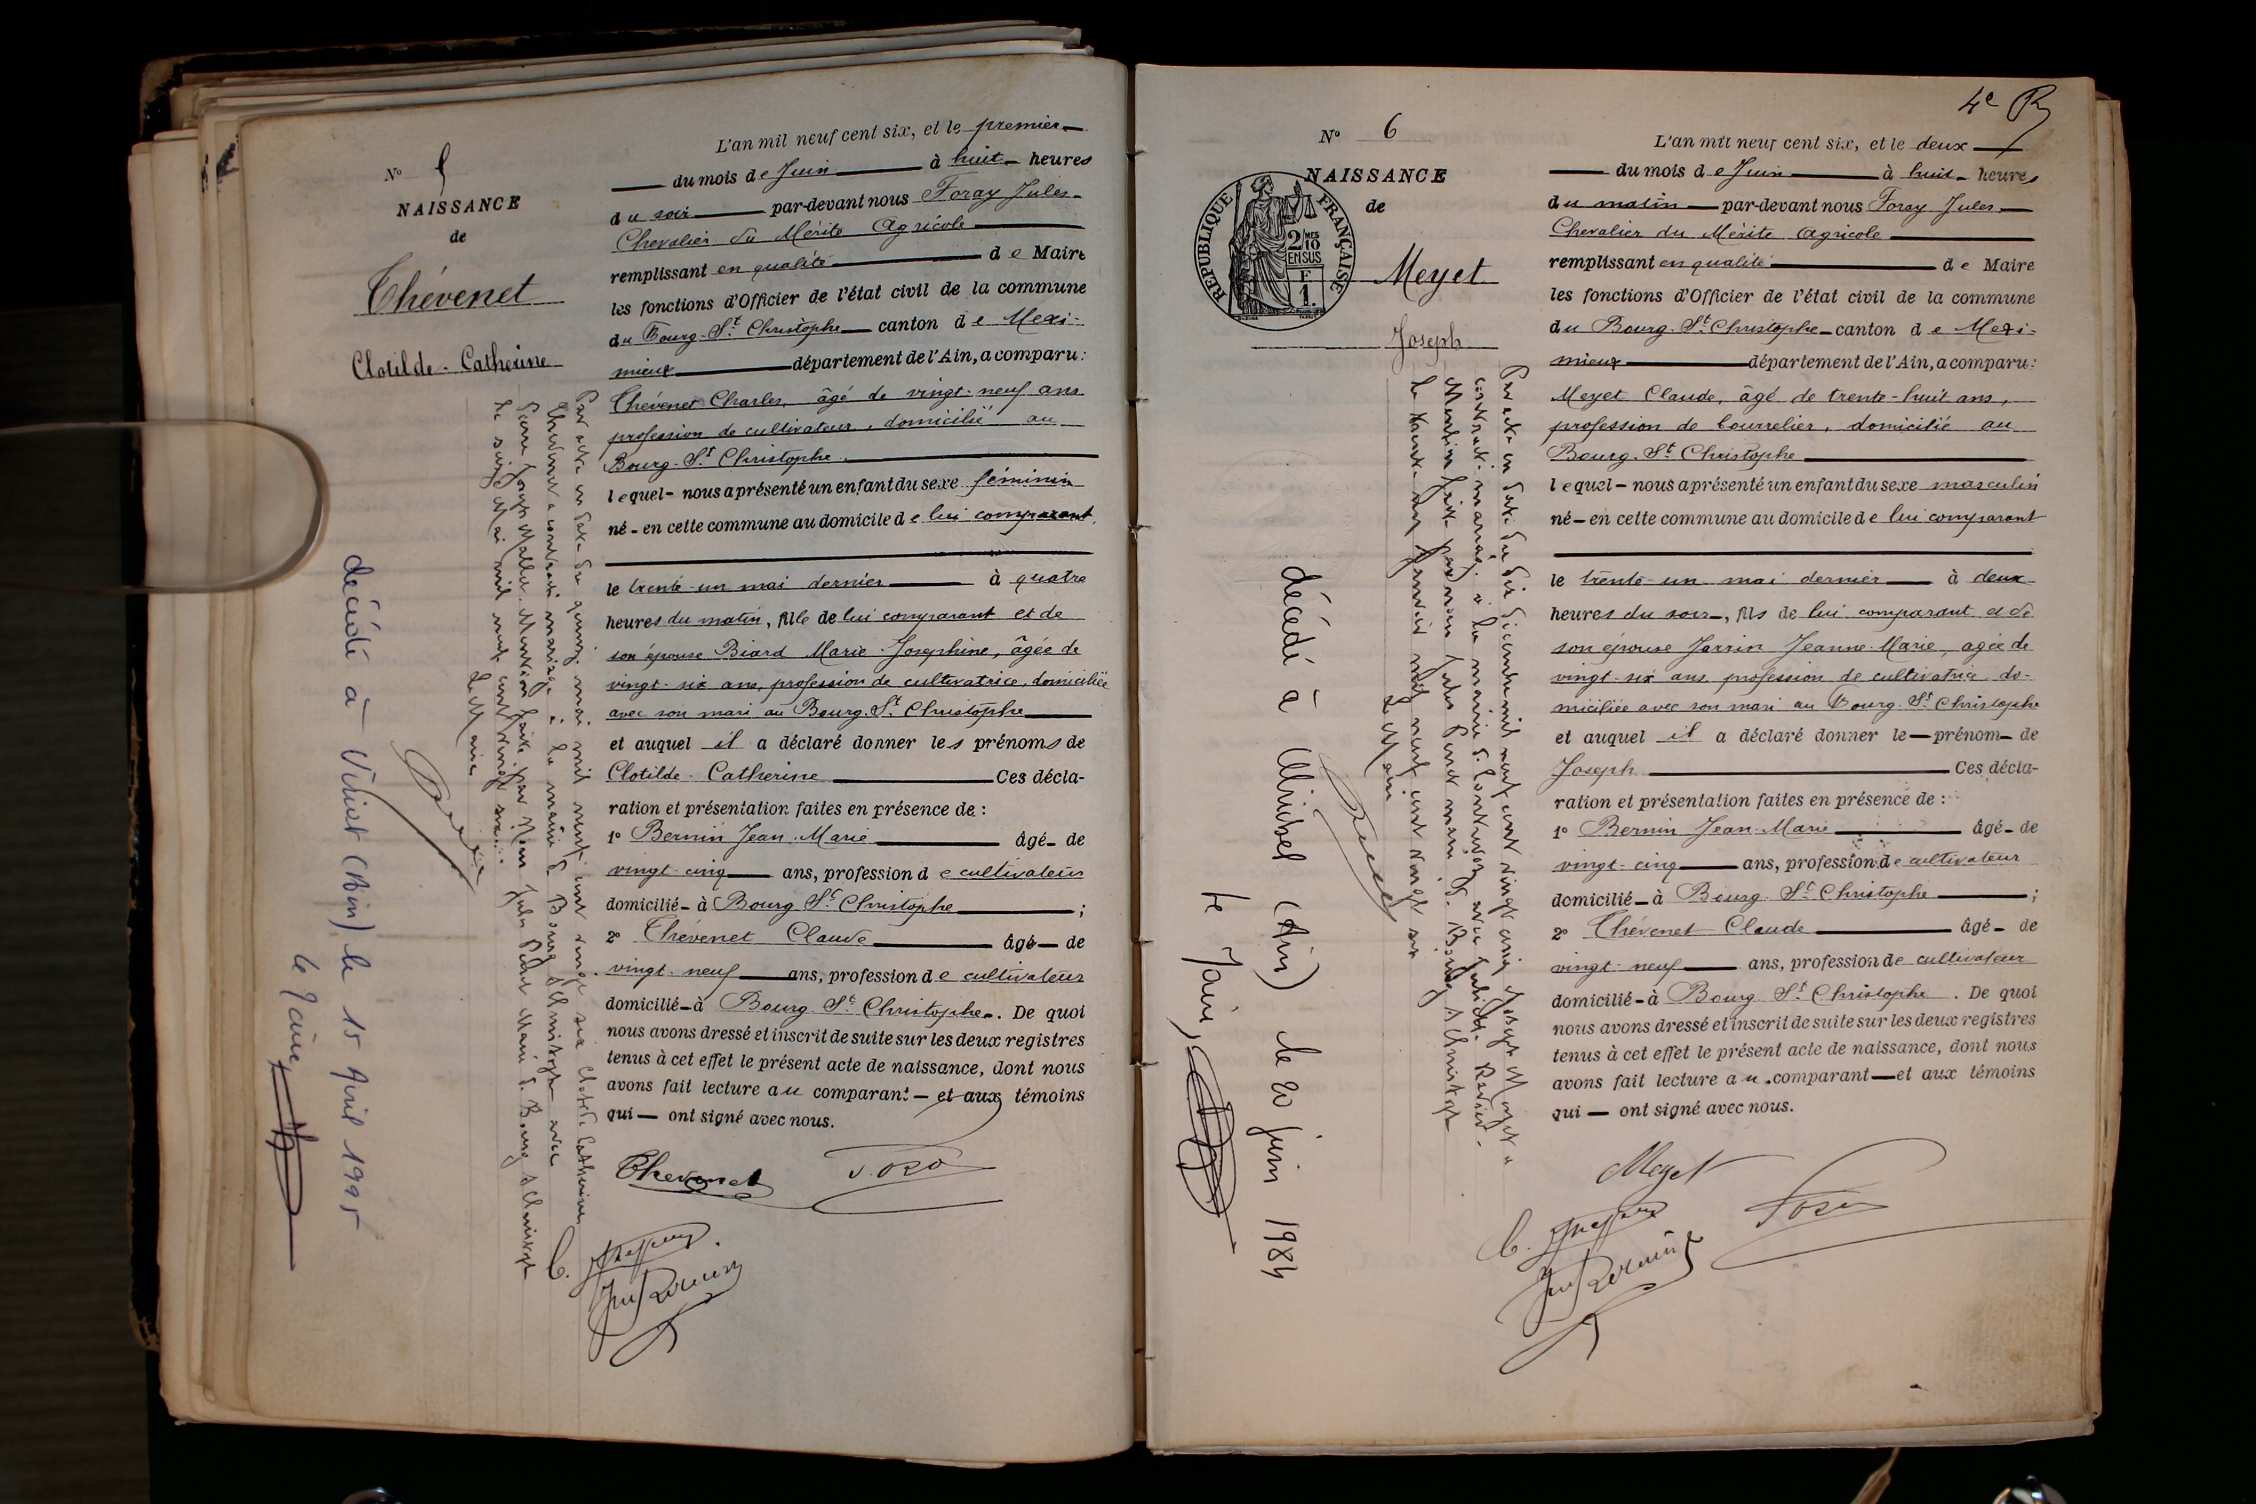 N° 5
NAISSANCE
de
Thévenet
Clotilde-Catherine
L'an mil neuf cent six, et le premier
du mois de Juin à huit heures
du soir par-devant nous Foray Jules
Chevalier du Mérite Agricole
remplissant en qualité de Maire
les fonctions d'Officier de l'état civil de la commune
du Bourg-St Christophe canton de Mexi-
mieux département de l'Ain, a comparu:
Thévenet Charles, âgé de vingt-neuf ans
profession de cultivateur, domicilié au
Bourg-St Christophe.
lequel nous a présenté un enfant du sexe féminin
né en cette commune au domicile de lui comparant,
le trente-un mai dernier à quatre
heures du matin, fille de lui comparant et de
son épouse Biard Marie-Josephine, âgée de
vingt-six ans, profession de cultivatrice, domiciliée
avec son mari au Bourg-St Christophe
et auquel il a déclaré donner les prénoms de
Clotilde-Catherine Ces décla-
ration et présentation faites en présence de :
1° Bernin Jean-Marie âgé de
vingt-cinq ans, profession de cultivateur
domicilié à Bourg St Christophe ;
2° Thévenet Claude âgé de
vingt-neuf ans, profession de cultivateur
domicilié à Bourg St Christophe. De quoi
nous avons dressé et inscrit de suite sur les deux registres
tenus à cet effet le présent acte de naissance, dont nous
avons fait lecture au comparant et aux témoins
qui ont signé avec nous.
Thévenet
Par acte en date du quinze mai mil neuf cent vingt six Clotilde Catherine
Thévenet a contracté mariage à la mairie de Bourg St Christophe avec
Pierre Joseph Mallet. Mention faite par Nous Jules Pinet Maire de Bourg St Christophe
Le seize Mai mil neuf cent vingt six.
Le Maire
décédé à Viriat (Ain) le 15 Avril 1995
le Maire,
4e
N° 6
NAISSANCE
de
RÉPUBLIQUE FRANÇAISE
2/10 MES
EN SUS
F
1.
Meyet
Joseph
L'an mil neuf cent six, et le deux
du mois de Juin à huit heures
du matin par-devant nous Foray Jules
Chevalier du Mérite Agricole
remplissant en qualité de Maire
les fonctions d'Officier de l'état civil de la commune
du Bourg-St Christophe canton de Mexi-
mieux département de l'Ain, a comparu:
Meyet Claude, âgé de trente-huit ans,
profession de bourrelier, domicilié au
Bourg-St Christophe
lequel nous a présenté un enfant du sexe masculin
né en cette commune au domicile de lui comparant
le trente-un mai dernier à deux
heures du soir, fils de lui comparant et de
son épouse Jarrin Jeanne-Marie, agée de
vingt-six ans profession de cultivatrice do-
miciliée avec son mari au Bourg-St Christophe
et auquel il a déclaré donner le prénom de
Joseph Ces décla-
ration et présentation faites en présence de :
1° Bernin Jean-Marie âgé de
vingt-cinq ans, profession de cultivateur
domicilié à Bourg-St Christophe ;
2° Thévenet Claude âgé de
vingt-neuf ans, profession de cultivateur
domicilié à Bourg St Christophe. De quoi
nous avons dressé et inscrit de suite sur les deux registres
tenus à cet effet le présent acte de naissance, dont nous
avons fait lecture au comparant et aux témoins
qui ont signé avec nous.
Meyet
Par acte en date du dix décembre mil neuf cent vingt cinq Joseph Meyet a
contracté mariage à la mairie de avec
Mention faite par nous Jules Pinet maire de Bourg St Christophe
Le janvier mil neuf cent vingt six
Le Maire
décédé à Miribel (Ain) le 20 juin 1984
le Maire,